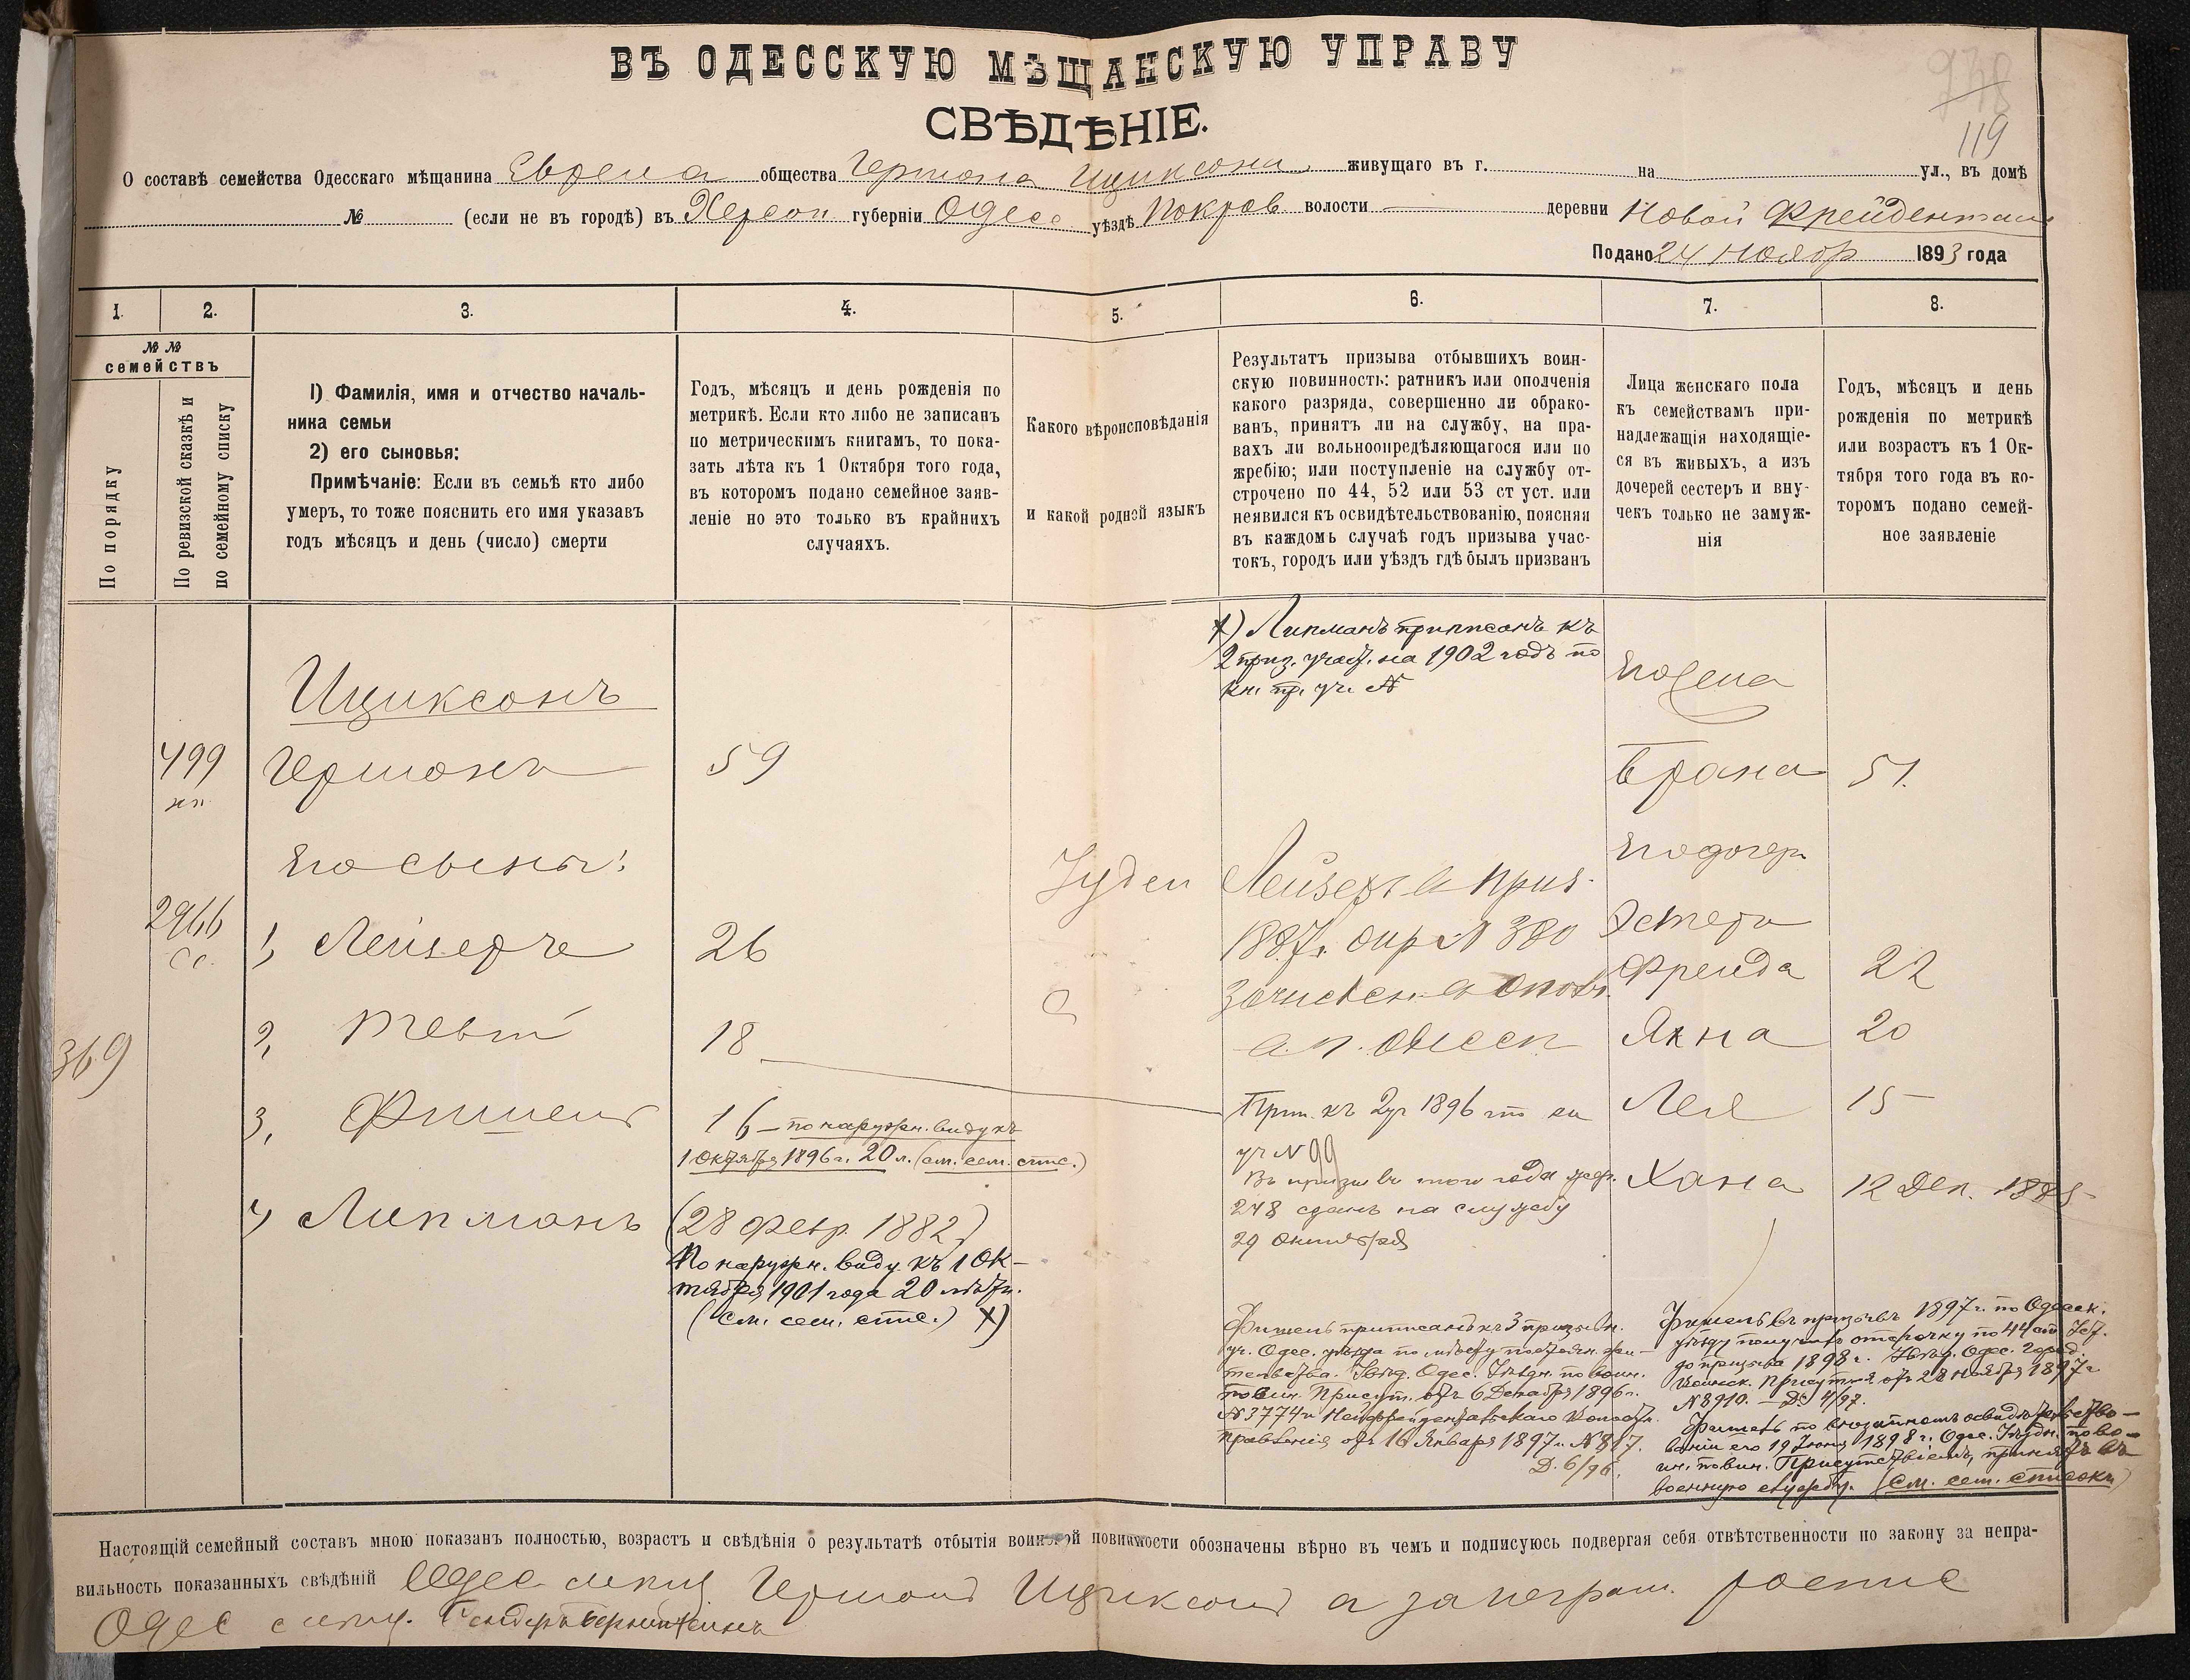 ВЪ ОДЕССКУЮ МѢЩАНСКУЮ УПРАВУ
СВѢДѢНІЕ.
119
О составѣ семейства Одесскаго мѣщанина Еврея общества Гершона Ициксона живущаго въ г. на ул., въ домѣ
№ (если не въ городѣ) въ Херсон губерніи Одесс уѣздѣ Покров волости — деревни Новой Фрейденталь
Подано 24 Ноябр 1893 года
1. 2. 3. 4. 5. 6. 7. 8.
№ №
семействъ
По порядку
По ревизской сказкѣ и
по семейному списку
1) Фамилія, имя и отчество началь-
ника семьи
2) его сыновья:
Примѣчаніе: Если въ семьѣ кто либо
умеръ, то тоже пояснить его имя указавъ
годъ мѣсяцъ и день (число) смерти
Годъ, мѣсяцъ и день рожденія по
метрикѣ. Если кто либо не записанъ
по метрическимъ книгамъ, то пока-
зать лѣта къ 1 Октября того года,
въ которомъ подано семейное заяв-
леніе но это только въ крайнихъ
случаяхъ.
Какого вѣроисповѣданія
и какой родной языкъ
Результатъ призыва отбывшихъ воин-
скую повинность: ратникъ или ополченія
какого разряда, совершенно ли обрако-
ванъ, принятъ ли на службу, на пра-
вахъ ли вольноопредѣляющагося или по
жребію; или поступленіе на службу от-
строчено по 44, 52 или 53 ст уст. или
неявился къ освидѣтельствованію, поясняя
въ каждомъ случаѣ годъ призыва учас-
токъ, городъ или уѣздъ гдѣ былъ призванъ
Лица женскаго пола
къ семействамъ при-
надлежащія находящіе-
ся въ живыхъ, а изъ
дочерей сестеръ и вну-
чекъ только не замуж-
нія
Годъ, мѣсяцъ и день
рожденія по метрикѣ
или возрастъ къ 1 Ок-
тября того года въ ко-
торомъ подано семей-
ное заявленіе
х) Липманъ приписанъ къ
2 приз. участ. на 1902 годъ по
кн. пр. уч. №
Ициксонъ
Его жена
499
Гершонъ 59
Брана 51.
Его сыны:
Его дочери
Іудей
Лейзеръ въ приз.
2966
1, Лейзеръ 26
1887 г. №380
Эстера
Фрейда 22
2, 18
Яхна 20
369
3, Фишель 16 — по наружн. виду къ
1 Октября 1896 г. 20 л. (см. сем. спис.)
Прип. къ 2 уч 1896
уч №99
Лея 15
Въ призывъ того года жер.
248 сданъ на службу
29 Октября
Хана 12 Дек.
4, Липманъ (28 февр. 1882)
По наружн. виду къ 1 Ок-
тября 1901 года 20 лѣтъ.
(см. сем. спис.) х)
Фишель приписанъ къ 3 призывн.
уч. Одес. уѣзда по мѣсту постоян. жи-
тельства. Увѣд. Одес. Уѣздн. по воин.
повин. Присут. отъ 6 Декабря 1896 г.
№3774 и Нейфрейдентальскаго Волостн.
Правленія отъ 16 Января 1897 г. №817.
Д. 6/96.
Фишель въ призывъ 1897 г. по Одесск.
уѣзду получилъ отсрочку по 44 ст. Уст.
до призыва 1898 г. Увѣд. Одес. Город.
Воинск. Присутствія отъ 28 Ноября 1897 г
№8910. — Д. 4/97.
Фишель по вторичномъ освидѣтельство-
ваніи его 19 Іюня 1898 г. Одес. Уѣздн. по во-
ин. повин. Присутствіемъ, принятъ въ
военную службу. (см. сем. списокъ)
Настоящій семейный составъ мною показанъ полностью, возрастъ и свѣдѣнія о результатѣ отбытія воинской повинности обозначены вѣрно въ чемъ и подписуюсь подвергая себя отвѣтственности по закону за непра-
вильность показанныхъ свѣдѣній Одес. Гершонъ Ициксонъ а за неграм.
Одес